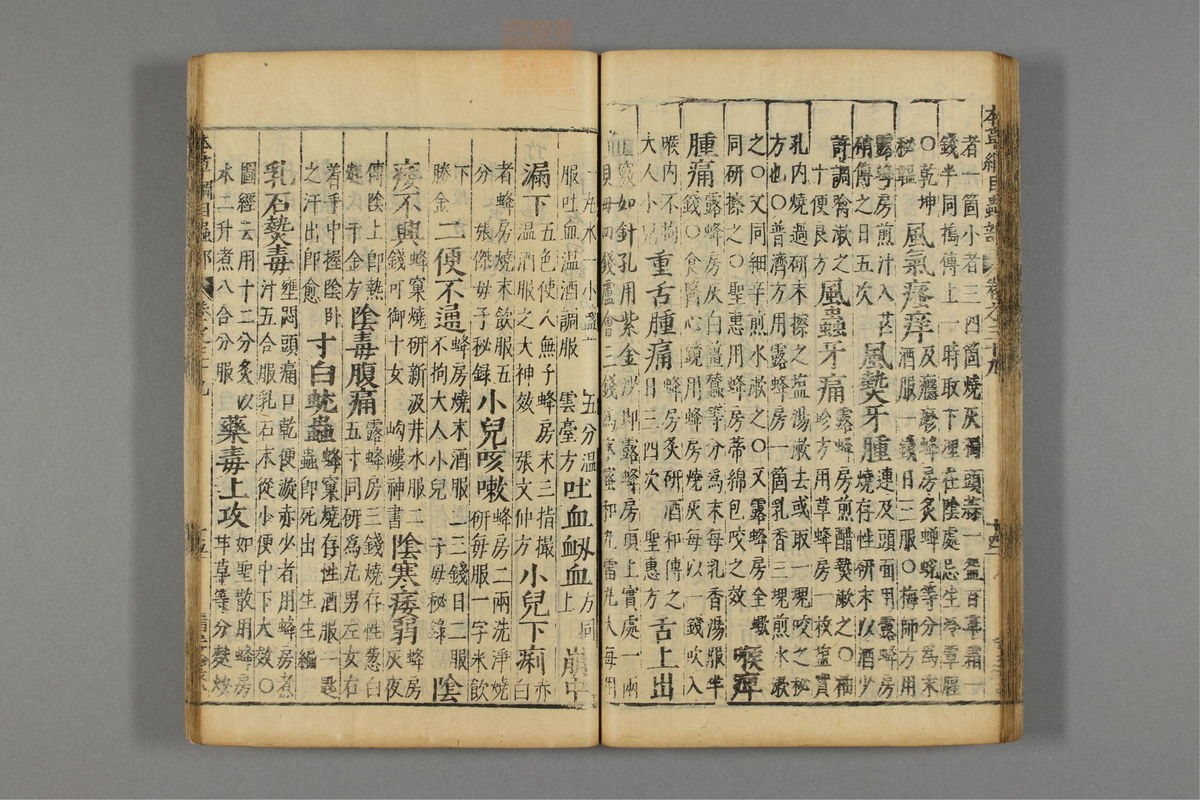 本草綱目蟲部
者一箇小者三四箇燒灰獨頭蒜一盌百草霜一
錢半同搗傅上一時取下埋在陰處忌生冷葷腥
○乾坤秘韞 風氣瘙痒 及癮疹蜂房炙蟬蛻等分爲末酒服一錢日三服○梅師方用
露蜂房煎汁入芒硝傅之日五次 風熱牙腫 連及頭面用露蜂房燒存性研末以酒少
許調噙漱之十便良方 風蟲牙痛 露蜂房煎醋熱漱之○袖珍方用草蜂房一枚鹽實
孔內燒過研末擦之鹽湯漱去或取一塊咬之秘
方也○普濟方用露蜂房一箇乳香三塊煎水漱
之○又同細辛煎水漱之○又露蜂房全蠍
同研擦之○聖惠用蜂房蒂綿包咬之效 喉痺
腫痛 露蜂房灰白殭蠶等分爲末每乳香湯服半錢○食醫心鏡用蜂房燒灰每以一錢吹入
喉內不拘大人小兒 重舌腫痛 蜂房炙研酒和傅之日三四次 聖惠方 舌上出
血 竅如針孔用紫金沙即露蜂房頂上實處一兩貝母四錢盧會三錢爲末蜜和丸雷丸大每用
一丸水一小盞 五分溫服吐血溫酒調服 雲臺方 吐血衄血 方同上 崩中
漏下 五色使人無子蜂房末三指撮溫酒服之大神效 張文仲方 小兒下痢 赤白
者蜂房燒末飲服五分 張傑毋子秘録 小兒咳嗽 蜂房二兩洗淨燒研每服一字米飲
下 勝金 二便不通 蜂房燒末酒服二三錢日二服不拘大人小兒 子毋秘錄 陰
痿不興 蜂窠燒研新汲井水服二錢可御十女 岣嶁神書 陰寒痿弱 蜂房灰夜
傅陰上即熱 千金方 陰毒腹痛 露蜂房三錢燒存性葱白五寸同研爲丸男左女右
着手中握陰臥之汗出即愈 寸白蚘蟲 蜂窠燒存性酒服一匙蟲即死出 生生編
乳石熱毒 壅悶頭痛口乾便漩赤少者用蜂房煮汁五合服乳石末從小便中下大效○
圖經云用十二分炙以水二升煮八合分服 藥毒上攻 如聖散用蜂房甘草等分麩炒
本草綱目蟲部